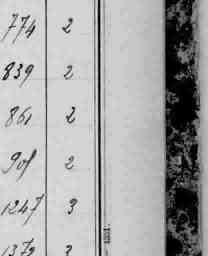 774 2
839 2
861 2
908 2
1247 3
1372 3